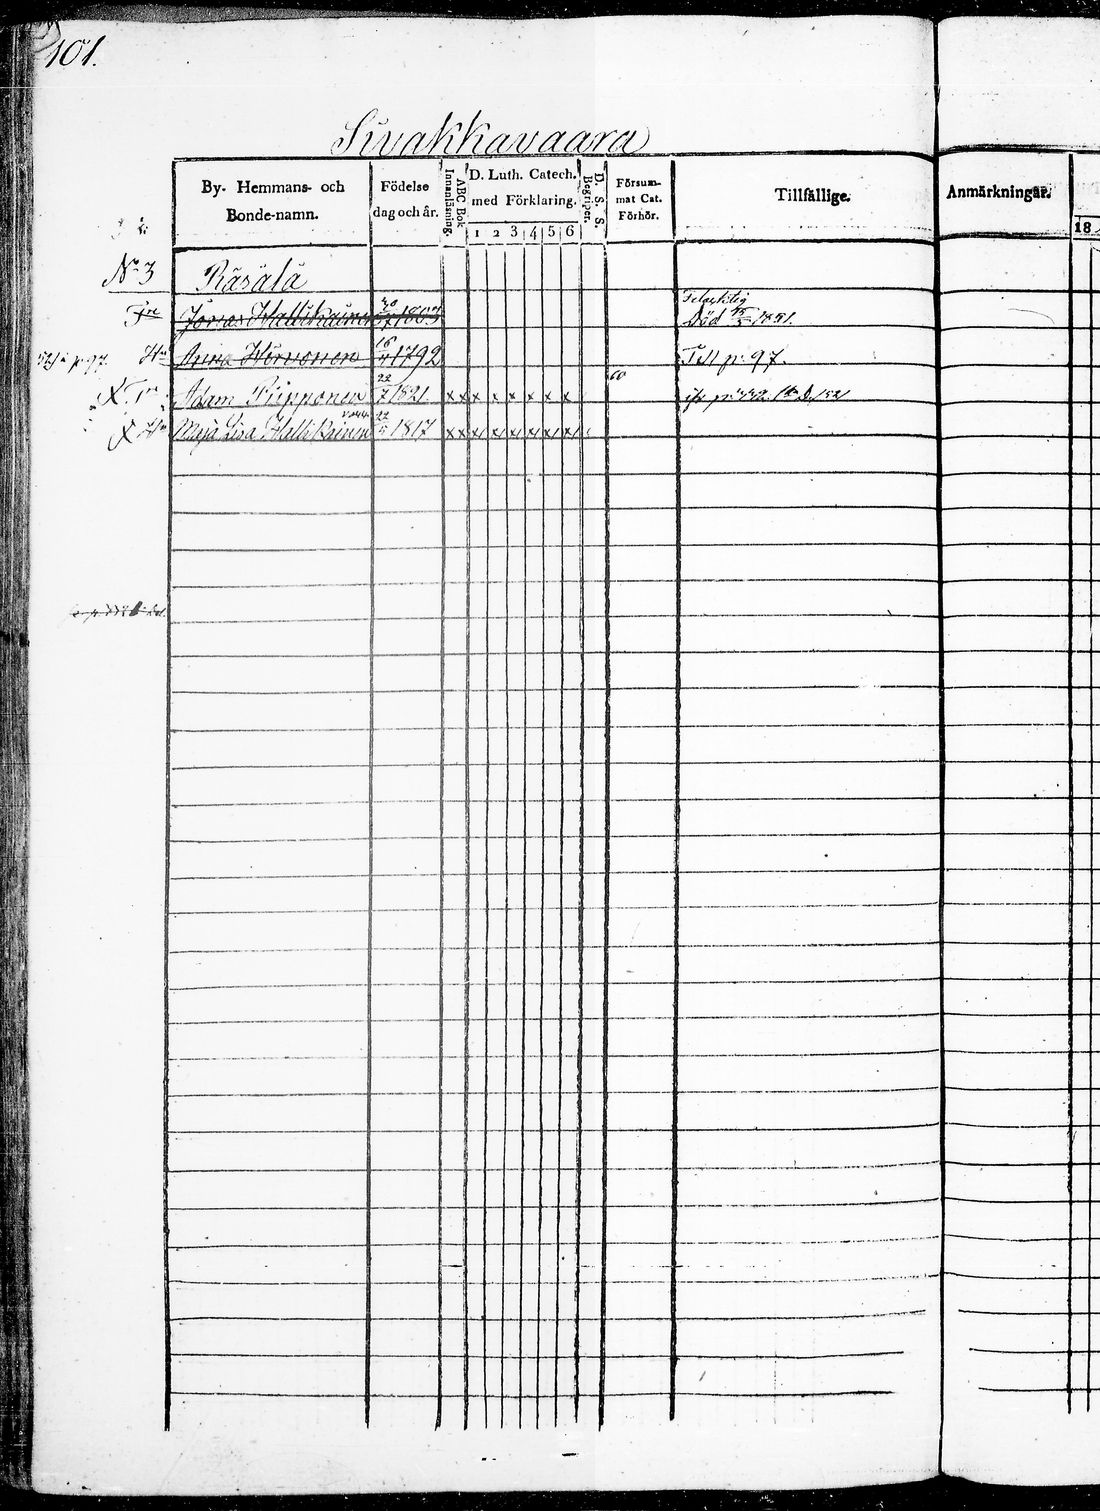 101.
Sivakkavaara
By- Hemmans- och Bonde-namn.
Födelse dag och år.
ABC Bok Innanläsning.
D. Luth. Catech. med Förklaring.
1 2 3 4 5 6
D. S. S. Begriper.
Försummat Cat. Förhör.
Tillfällige.
Anmärkningar.
18
No 3 Räsälä
Jonas Hallikainen 1803 Död 1851.
52 i p 97 Hu Anna Hirvonen 16/4 1792 Till p. 97.
X Adam Piipponen 22/7 1821. x x x x x x x x 60
X Hu Maja Lisa Hallikainen 22/5 1817 x x x x x x x x